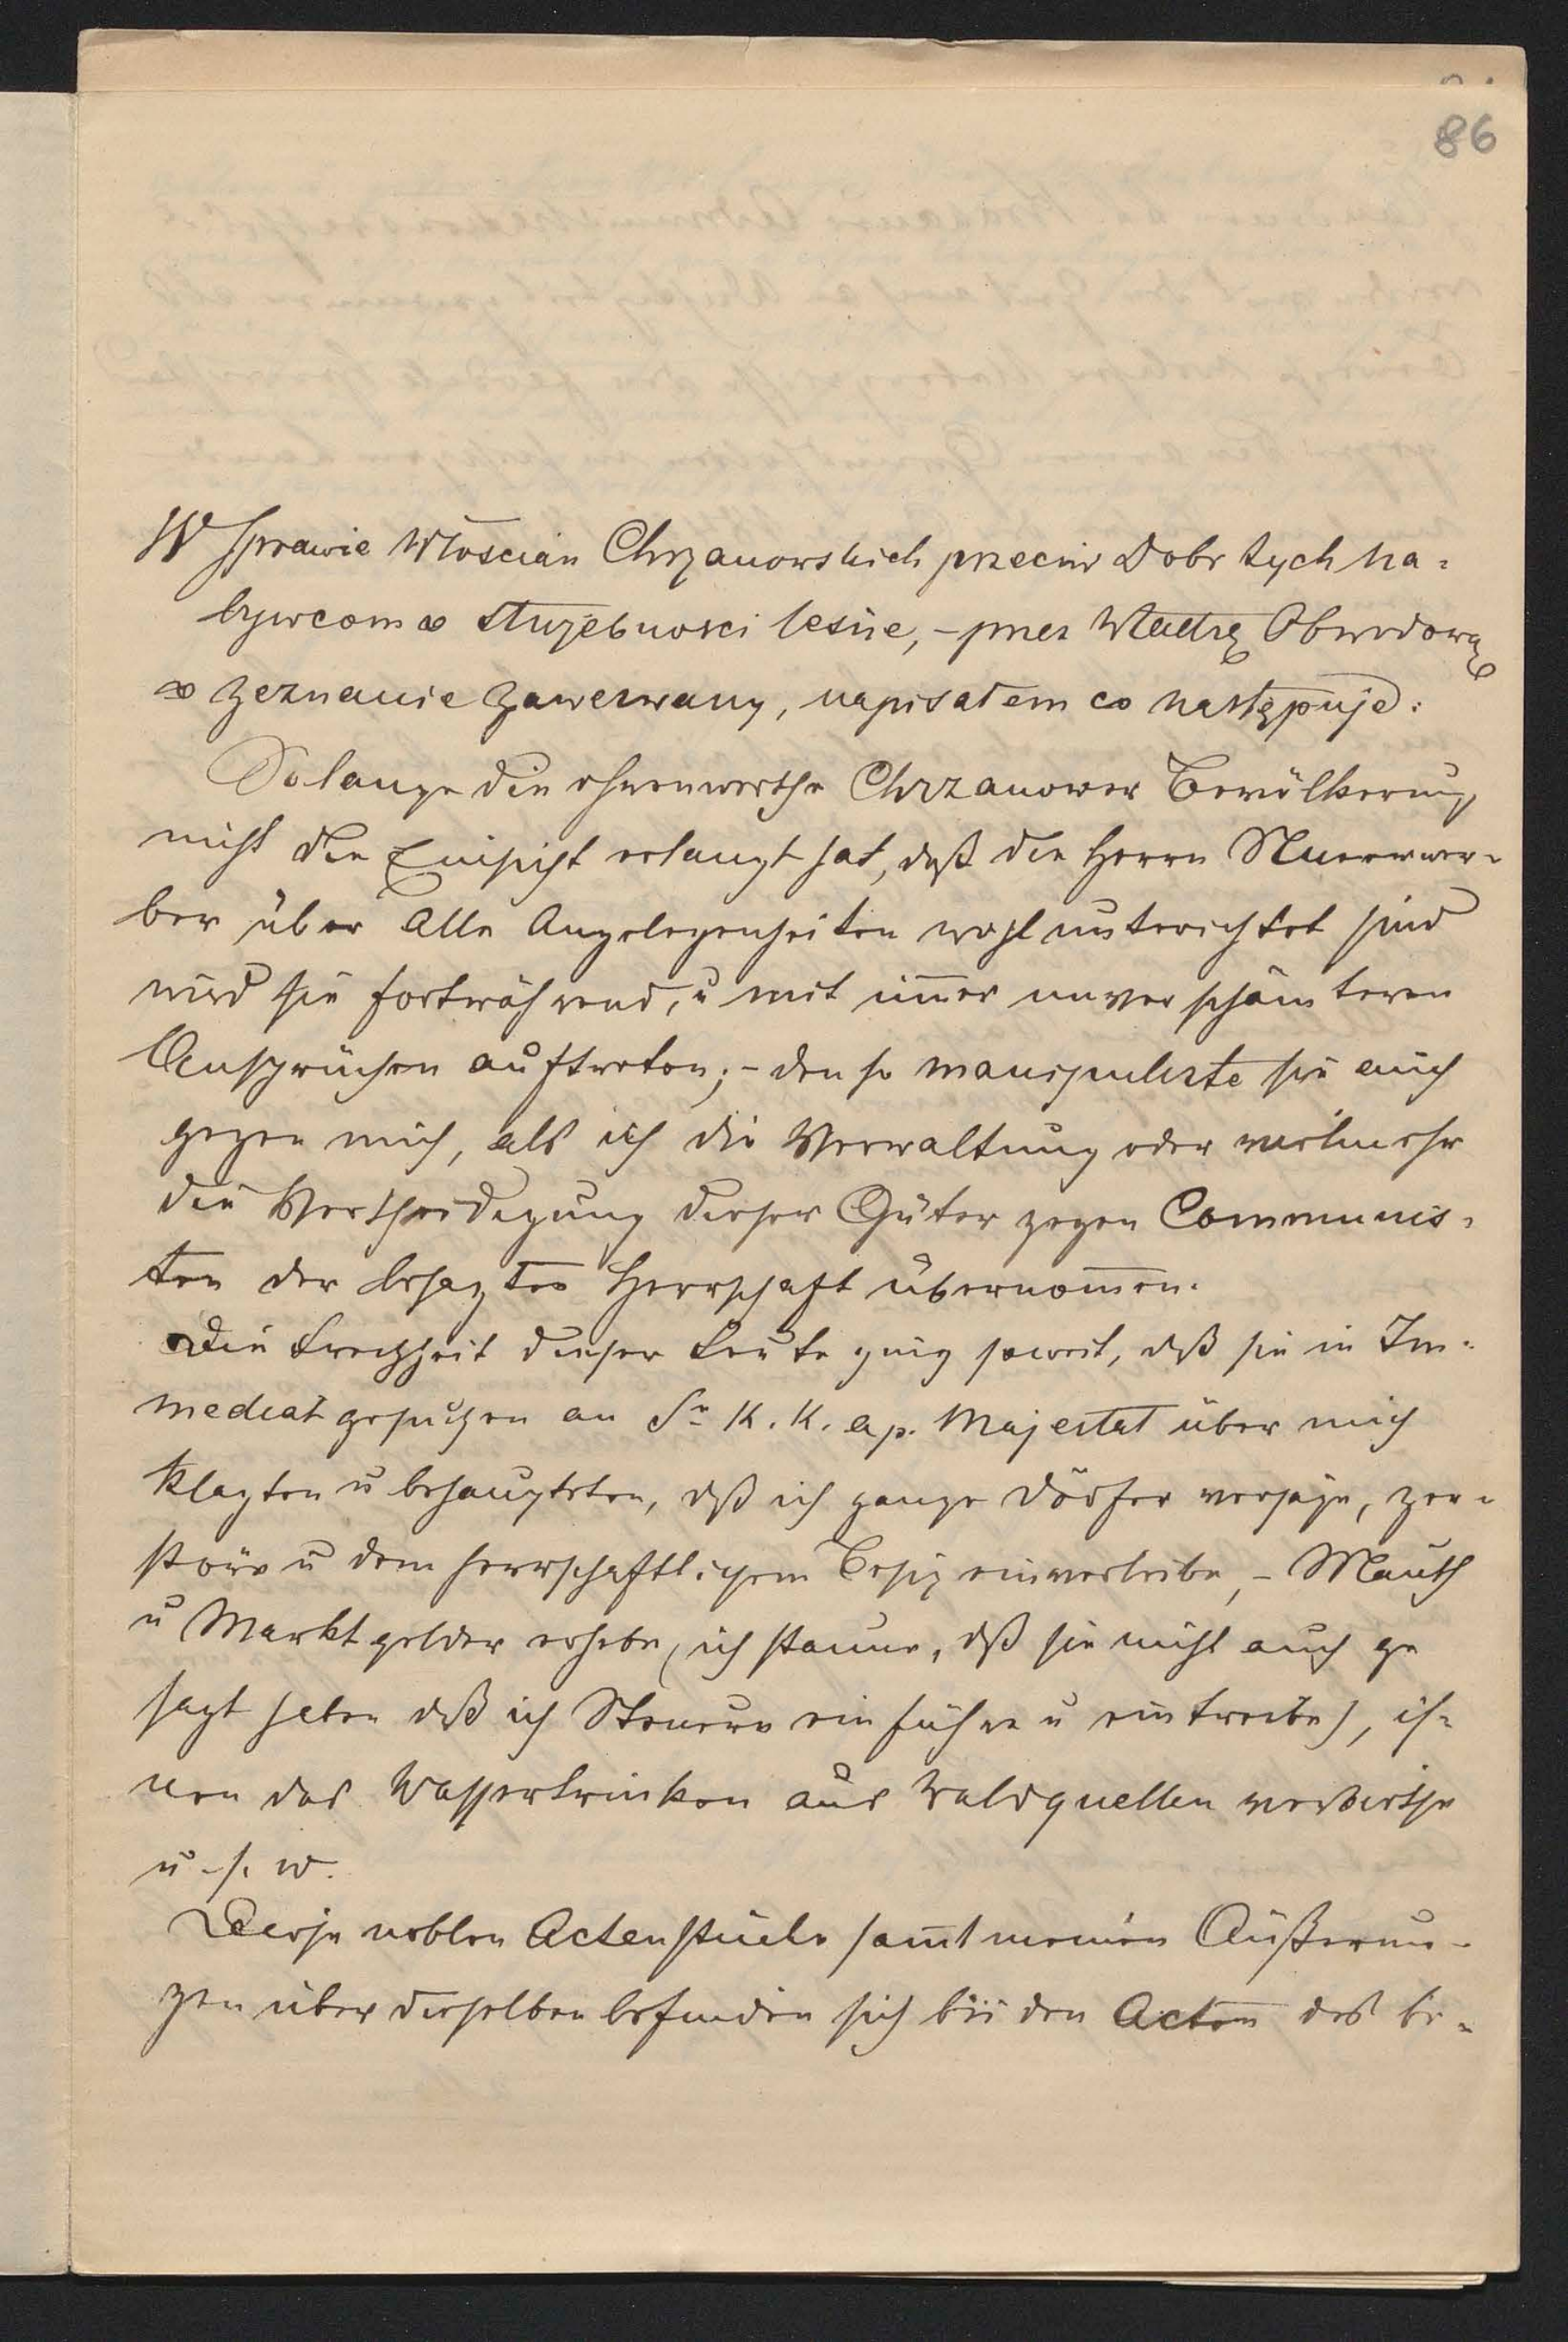 86
W Sprawie Włoscian Chrzanowskich przeciw Dobr tych na=
bywcom o służebnosci lesne, – przez Władzę Obwodową
o zeznanie zawezwany, napisałem co następuje:
Solange die ehrenwerthe Chrzanower Bevölkerung
nicht die Einsicht erlangt hat, daß die Herrn Neuerwer=
ber über alle Angelegenheiten wohl unterichtet sind
wird sie fortwährend, u mit im̄er unverschämteren
Ansprüchen auftreten; – den so manipulirte sie auch
gegen mich, als ich die Verwaltung oder vielmehr
die Vertheidigung dieser Güter gegen Communis=
ten der besagten Herrschaft übernom̄en.
Die Frechheit dieser Leute ging soweit, daß sie in Im=
mediatgesuchen an Sr K. K. ap. Majestat über mich
klagten u behaupteten, dß ich ganze Dörfer verjage, zer=
störe u dem herrschaftlichem Besiz einverleibe, – Mauth
u Marktgelder erhebe, (ich staune, dß sie nicht auch ge
sagt haben dß ich Steuern einführe u eintreibe), ih=
nen das Wassertrinken aus Waldquellen verbiethe
u. s. w.
Diese noblen Actenstücke sam̄t meinen Äußerun=
gen über dieselben befinden sich bei den Acten des be=